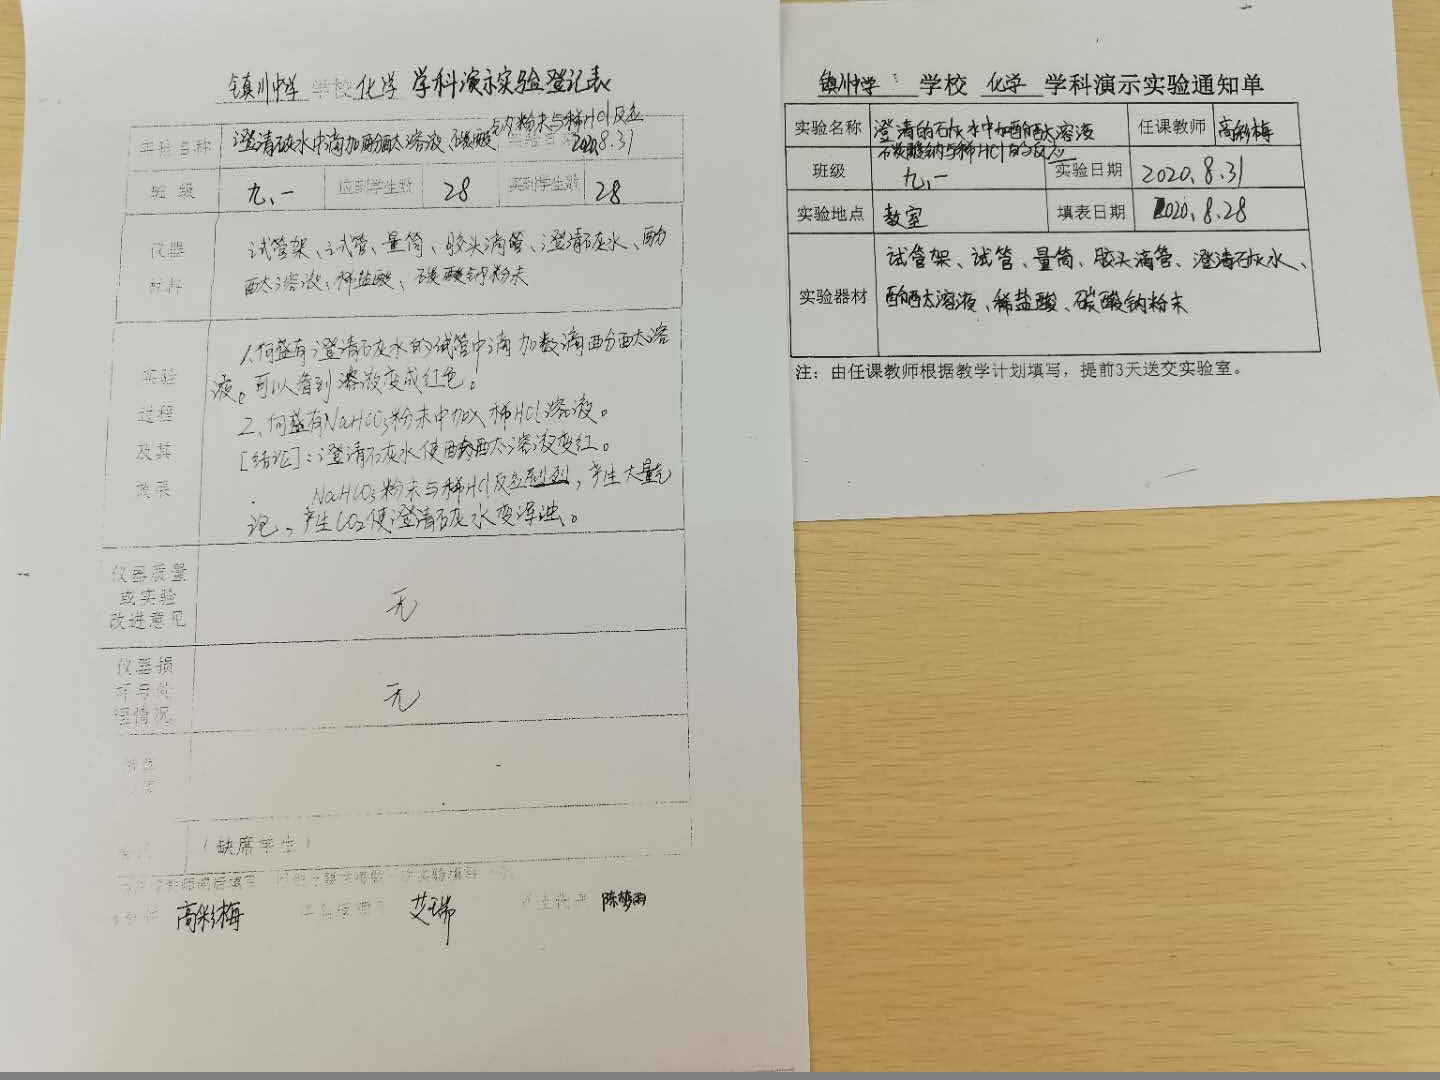 镇川中学 学校 化学 学科演示实验登记表
实验名称 澄清石灰水中滴加酚酞溶液、碳酸钠粉末与稀HCl反应 2020.8.31
班 级 九、一 应到学生数 28 实到学生数 28
仪器 材料 试管架、试管、量筒、胶头滴管、澄清石灰水、酚
酞溶液、稀盐酸、碳酸钠粉末
实验 过程 及其 效果
1.向盛有澄清石灰水的试管中滴加数滴酚酞溶
液。可以看到溶液变成红色。
2、向盛有NaHCO3粉末中加入稀HCl溶液。
[结论]:澄清石灰水使酚酞溶液变红。
NaHCO3粉末与稀HCl反应剧烈,产生大量气
泡,产生CO2使澄清石灰水变浑浊。
仪器质量 或实验 改进意见 无
仪器损 坏与处 理情况 无
(缺席学生)
高彩梅 艾瑞 陈梦雨
镇川中学 学校 化学 学科演示实验通知单
实验名称 澄清的石灰水中加酚酞溶液 任课教师 高彩梅
石炭酸钠与稀HCl的反应
班级 九、一 实验日期 2020、8、31
实验地点 教室 填表日期 2020、8、28
实验器材 试管架、试管、量筒、胶头滴管、澄清石灰水、
酚酞溶液、稀盐酸、碳酸钠粉末
注：由任课教师根据教学计划填写，提前3天送交实验室。